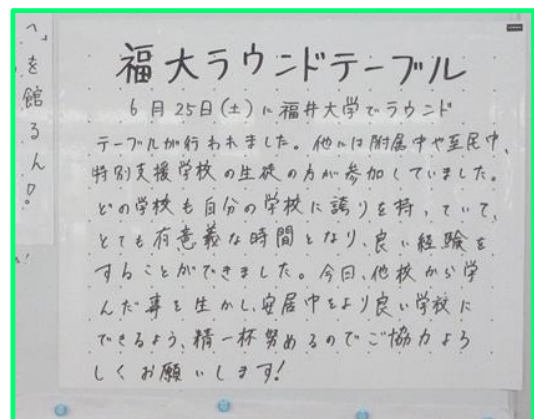 へ
を
館
る
ん
!
福大ラウンドテーブル
6月25日(土)に福井大学でラウンド
テーブルが行われました。他には附属中や至民中、
特別支援学校の生徒の方が参加していました。
どの学校も自分の学校に誇りを持っていて、
とても有意義な時間となり、良い経験を
することができました。今日、他校から学
んだ事を生かし、安居中をより良い学校に
できるよう、精一杯努めるのでご協力よろ
しくお願いします!